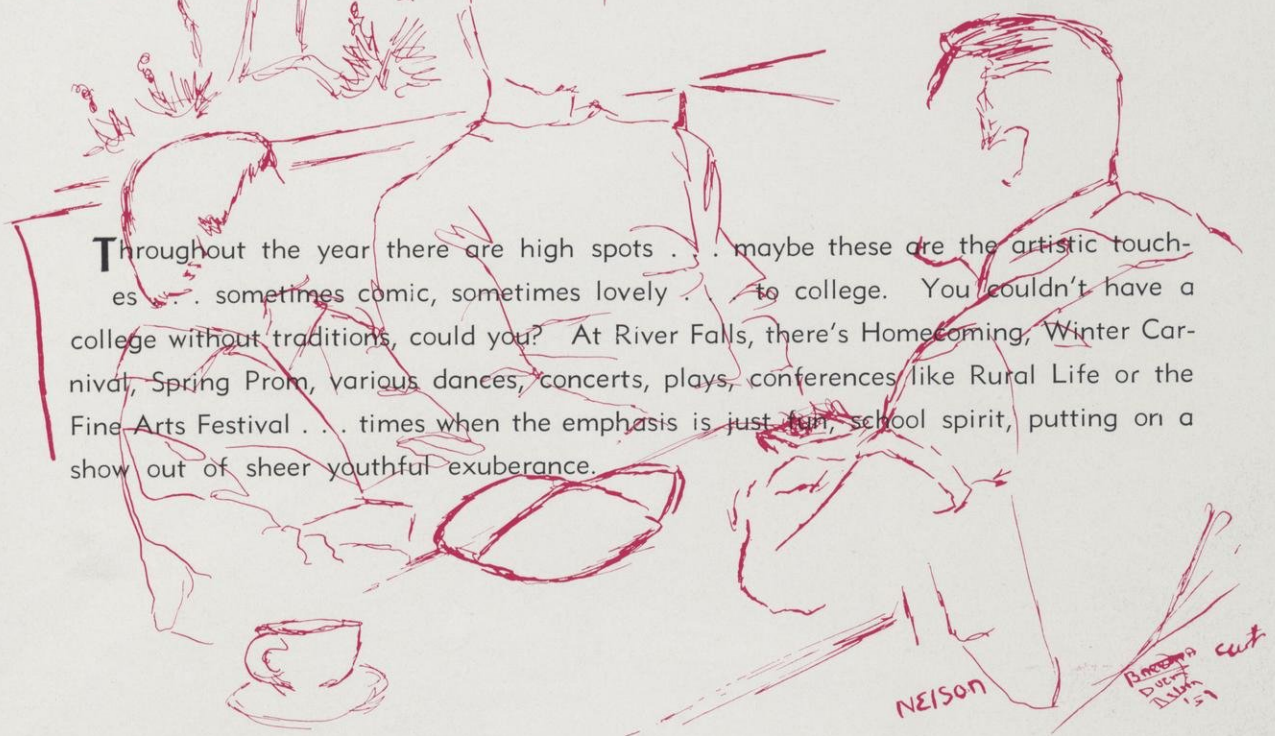 Throughout the year there are high spots . . . maybe these are the artistic touch-
es . . . sometimes comic, sometimes lovely . . . to college. You couldn't have a
college without traditions, could you? At River Falls, there's Homecoming, Winter Car-
nival, Spring Prom, various dances, concerts, plays, conferences like Rural Life or the
Fine Arts Festival . . . times when the emphasis is just fun, school spirit, putting on a
show out of sheer youthful exuberance.
NELSON
'59